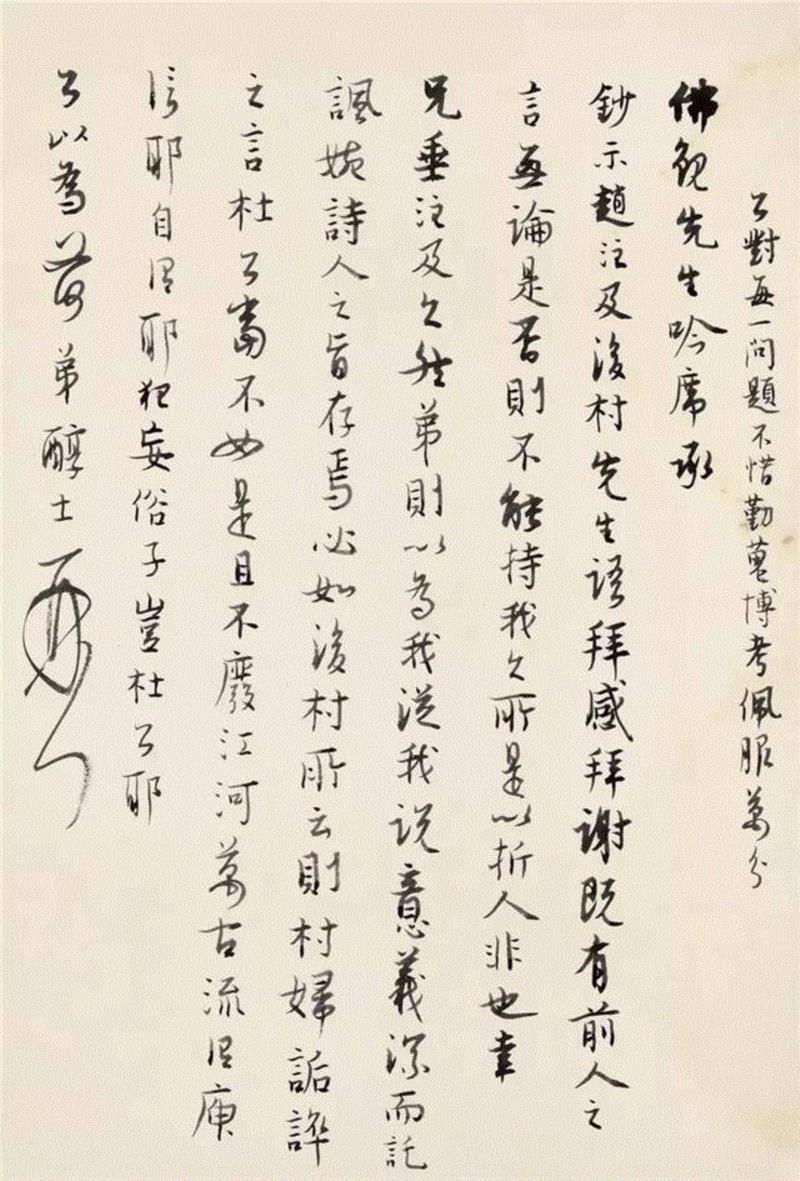 公對每一問題不惜勤蒐博考佩服萬分
佛觀先生吟席承
鈔示趙注及後村先生語拜感拜謝既有前人之
言無論是否則不能持我之所是以折人非也幸
兄垂注及之然弟則以為我從我說意義深而託
諷婉詩人之旨存焉必如後村所云則村婦詬誶
之言杜公當不如是且不廢江河萬古流謂庾
信耶自謂耶狂妄俗子豈杜公耶
公以為何弟醇士